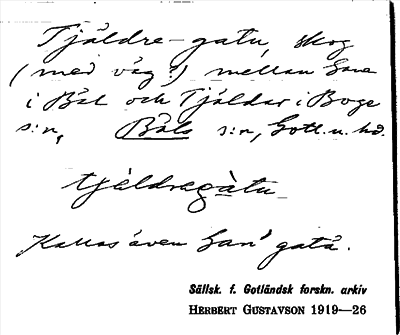 Tjäldre-gatu, skog
(med väg?) mellan Gane
i Bäl och Tjäldar i Boge
s:n, Bäls s:n, Gotl. n. hd.
tjèldregàtu
Kallas även Gan' gatå.
Sällsk. f. Gotländsk forskn. arkiv
HERBERT GUSTAVSON 1919—26